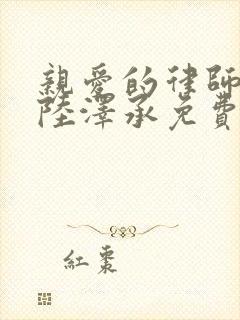 親愛的律師
陸澤承免費
紅棗